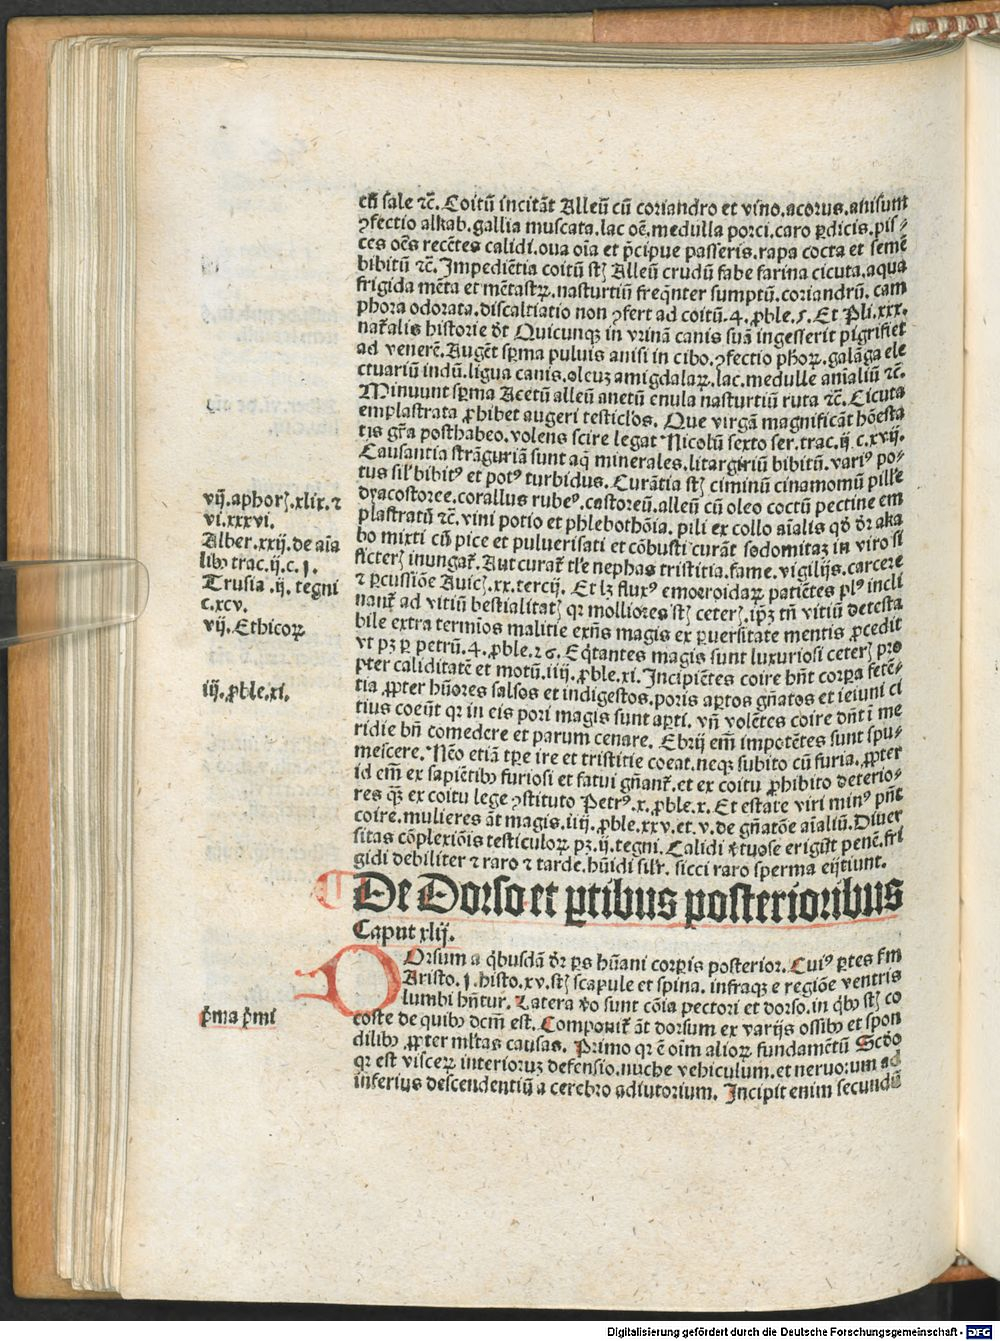 cū sale ⁊c̄. Coitū incitāt Alleū cū coriandro et vino. acorus. anisum
ꝯfectio alkab. gallia muscata. lac oē. medulla porci. caro ꝑdicis. pis⸗
ces oēs recētes calidi. oua oīa et p̄cipue passeris. rapa cocta et semē
bibitū ⁊c̄. Impediētia coitū st̄ Alleū crudū fabe farina cicuta. aqua
frigida mēta et mētastꝝ. nasturtiū freq̄nter sumptū. coriandrū. cam
phora odorata. discaltiatio non ꝯfert ad coitū. 4. ꝓble. 5. Et Pli. xxx.
nat̄alis historie dr̄ Quicunqꝫ in vrinā canis suā ingesserit pigrifiet
ad venerē. Augēt sꝑma puluis anisi in cibo. ꝯfectio phoꝝ. galāga ele
ctuariū indū. ligua canis. olcuꝫ amigdalaꝝ. lac. medulle aīaliū ⁊c̄.
Minuunt sꝑma Acetū alleū anetū enula nasturtiū ruta ⁊c̄. Cicuta
emplastrata ꝓhibet augeri testiclos. Que virgā magnificāt hōesta
tis gr̄a posthabeo. volens scire legat Nicolū sexto ser. trac. ij. c. xvij.
Causantia strāguriā sunt aq̄ minerales. litargiriū bibitū. variꝰ po⸗
tus sil' bibitꝰ et potꝰ turbidus. Curātia st̄ ciminū cinamomū pille
dyacostorce. corallus rubeꝰ. castoreū. alleū cū oleo coctū pectine em
plastratū ⁊c̄. vini potio et phlebothōia. pili ex collo aīalis qd̄ dr̄ aka
bo mixti cū pice et puluerisati et cōbusti curāt sodomitaꝫ in viro si
ficterꝫ inungat̄. Aut curat̄ tl'e nephas tristitia. fame. vigilijs. carcere
⁊ ꝑcussiōe Auicꝫ. xx. tercij. Et lꝫ fluxꝰ emoeroidaꝝ patiētes plꝰ incli
nant̄ ad vitiū bestialitatꝫ qꝛ molliores st̄ ceterꝫ. ip̄ꝫ tn̄ vitiū detesta
bile extra termīos malitie exn̄s magis ex ꝑuersitate mentis ꝓcedit
vt pꝫ ꝑ petrū. 4. ꝓble. 26. Eq̄tantes magis sunt luxuriosi ceterꝫ pro
pter caliditatē et motū. iiij. ꝓble. xi. Incipiētes coire hn̄t corꝑa fetē⸗
tia ꝓpter hūores salsos et indigestos. poris aꝑtos gn̄atos et ieiuni ci
tius coeūt qꝛ in eis pori magis sunt aꝑti. vn̄ volētes coire dn̄t ī me
ridie bn̄ comedere et parum cenare. Ebrij em̄ impotētes sunt spu⸗
mescere. Nēo etiā tꝑe ire et tristitie coeat. neqꝫ subito cū furia. ꝓpter
id em̄ ex sapiētibꝰ furiosi et fatui gn̄ant̄. et ex coitu ꝓhibito deterio⸗
res qꝫ ex coitu lege ꝯstituto Petrꝰ. x. ꝓble. x. Et estate viri minꝰ pn̄t
coire. mulieres āt magis. iiij. ꝓble. xxv. et. v. de gn̄atōe aīaliū. Diuer
sitas cōplexiōis testiculoꝝ pꝫ. ij. tegni. Calidi v̄tuose erigūt penē. fri
gidi debiliter ⁊ raro ⁊ tarde. hūidi sil'r. sicci raro sperma eijtiunt.
De Dorso et ꝑtibus posterioribus
Caput xlij.
DOrsum a qb̄usdā dr̄ ꝑs hūani corꝑis posterior. Cuiꝰ ꝑtes ẜm
Aristo. j. histo. xv. st̄ scapule et spina. infraqꝫ e regiōe ventris
lumbi hn̄tur. Latera v̄o sunt cōia pectori et dorso. in qb̄ꝰ st̄ co
coste de quibꝰ dcm̄ est. Componit̄ āt dorsum ex varijs ossibꝰ et spon
dilibꝰ ꝓpter ml̄tas causas. Primo qꝛ ē oīm alioꝝ fundamētū Scd̄o
qꝛ est visceꝝ interioruꝫ defensio. nuche vehiculum. et neruorum ad
inferius descendentiū a cerebro adiutorium. Incipit enim secundū
vij. aphorꝫ. xlix. ⁊
vi. xxxvi.
Alber. xxij. de aīa
libꝰ trac. ij. c. j.
Trusia .ij. tegni
c. xcv.
vij. Ethicoꝝ
iij. ꝓble. xi.
p̄ma p̄mi
Digitalisierung gefördert durch die Deutsche Forschungsgemeinschaft - DFG